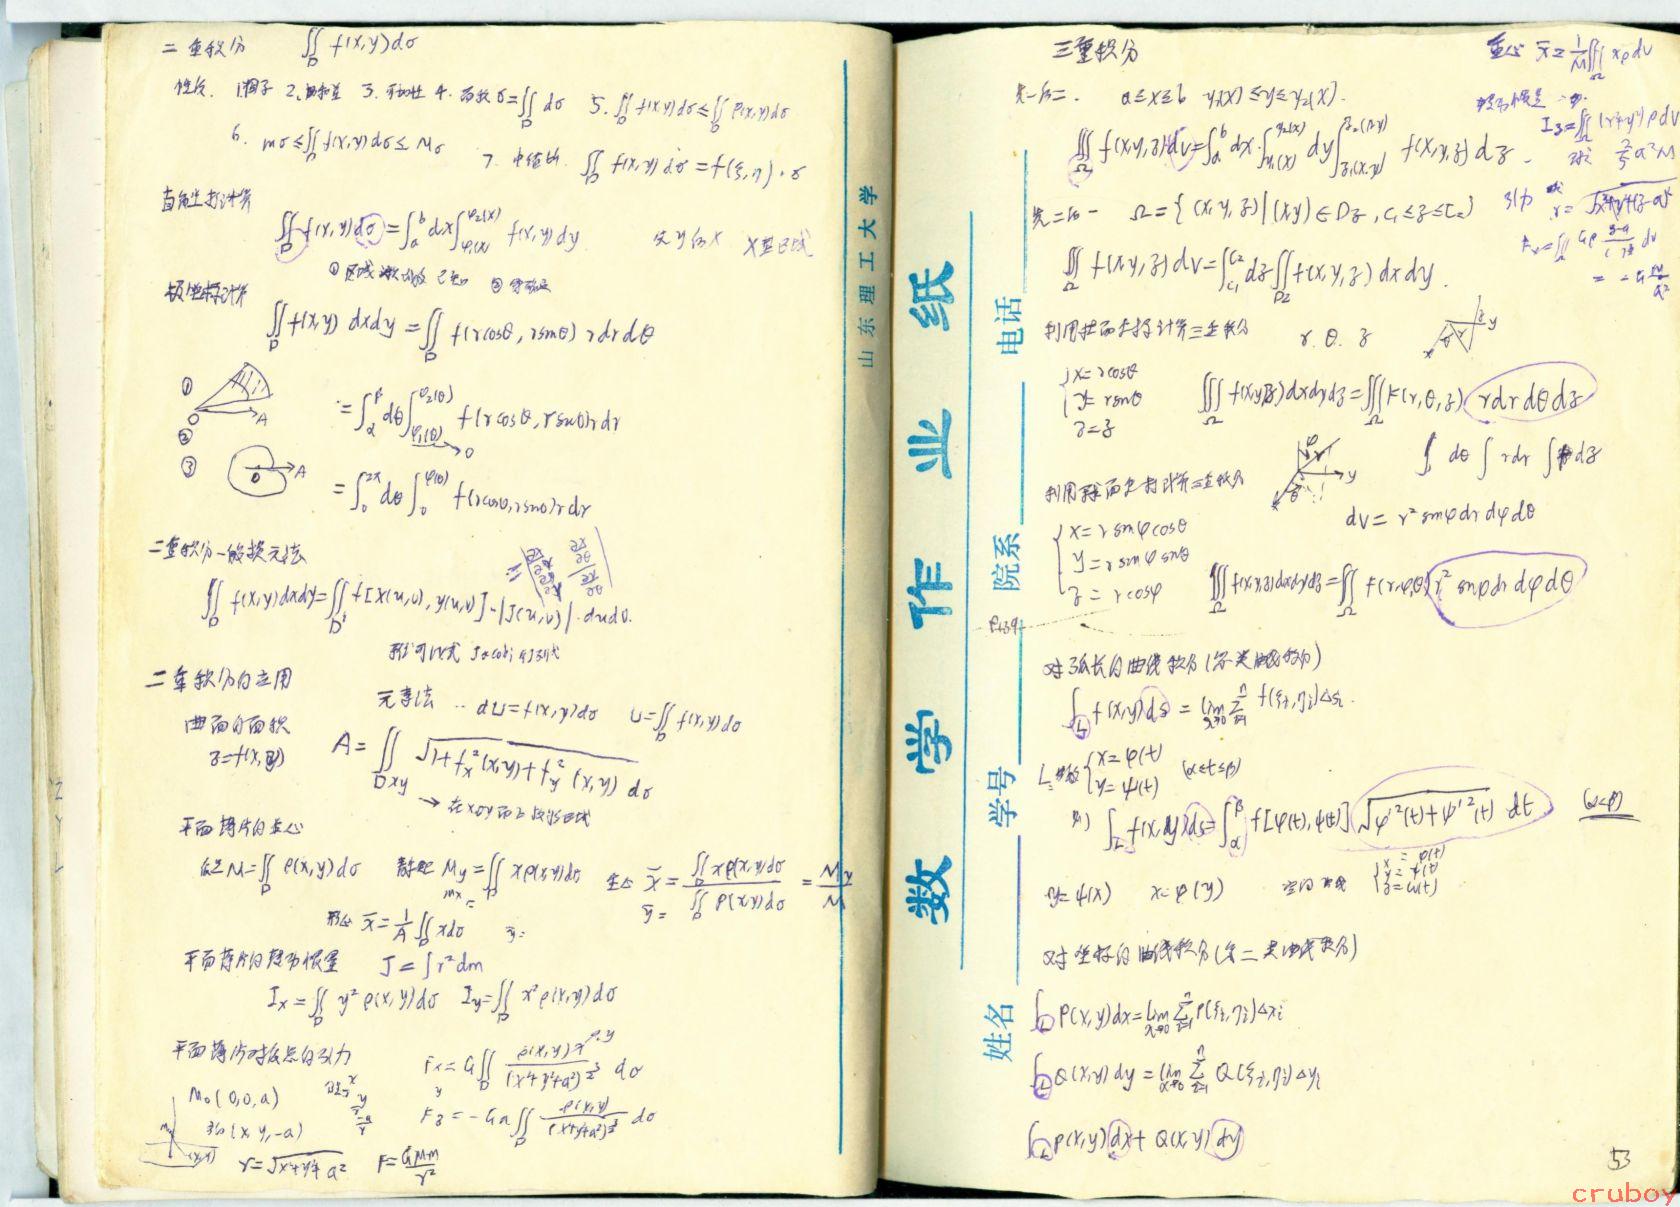 二重积分 ∬_D f(x,y)dσ
性质. 2. 3. 可加性 4. 面积 σ=∬_D dσ 5. ∬_D f(x,y)dσ≤∬_D P(x,y)dσ
6. mσ≤∬_D f(x,y)dσ≤Mσ
7. 中值 ∬_D f(x,y)dσ=f(ξ,η)·σ
直角坐标计算
∬_D f(x,y)dσ=∫_a^b dx∫_{φ₁(x)}^{φ₂(x)} f(x,y)dy 先y后x X型区域
① 区域 ②
极坐标计算
∬_D f(x,y) dxdy=∬_D f(rcosθ, rsinθ) rdrdθ
① O A
=∫_α^β dθ∫_{φ₁(θ)}^{φ₂(θ)} f(rcosθ, rsinθ)rdr
→0
②
③ D A
=∫_0^{2π} dθ∫_0^{φ(θ)} f(rcosθ,rsinθ)rdr
二重积分一般换元法
∬_D f(x,y)dxdy=∬_{D'} f[x(u,v), y(u,v)]·|J(u,v)|·dudv.
雅可比式 Jacobi行列式
二重积分的应用
元素法 dU=f(x,y)dσ U=∬_D f(x,y)dσ
曲面的面积
z=f(x,y) A=∬_{Dxy} √(1+f_x²(x,y)+f_y²(x,y)) dσ
→在xoy面上投影区域
平面薄片的重心
M=∬_D ρ(x,y)dσ 静矩 My=∬_D xρ(x,y)dσ 重心 x̄=∬_D xρ(x,y)dσ/∬_D ρ(x,y)dσ=My/M
Mx= ȳ=
形心 x̄=1/A∬_D xdσ ȳ=
平面薄片的转动惯量 J=∫r²dm
Ix=∬_D y²ρ(x,y)dσ Iy=∬_D x²ρ(x,y)dσ
平面薄片对质点的引力
Fx=G∬_D ρ(x,y)x/(x²+y²+a²)^{3/2} dσ
y
M₀(0,0,a)
(x,y,-a)
Fz=-Ga∬_D ρ(x,y)/(x²+y²+a²)^{3/2} dσ
r=√(x²+y²+a²) F=GMm/r²
山东理工大学
数学作业纸
姓名 学号 院系 电话
三重积分
重心 x̄=1/M∭_Ω xρdv
先一后二. a≤x≤b y₁(x)≤y≤y₂(x).
转动惯量
Iz=∭_Ω(x²+y²)ρdv
∭_Ω f(x,y,z)dv=∫_a^b dx·∫_{y₁(x)}^{y₂(x)} dy∫_{z₁(x,y)}^{z₂(x,y)} f(x,y,z)dz.
球 2/5 a²M
先二后一 Ω={(x,y,z)|(x,y)∈Dz, c₁≤z≤c₂}
引力
∭_Ω f(x,y,z)dv=∫_{c₁}^{c₂}dz∬_{Dz} f(x,y,z)dxdy.
利用柱面坐标计算三重积分 r. θ. z
{x=rcosθ
y=rsinθ
z=z
∭_Ω f(x,y,z)dxdydz=∭_Ω F(r,θ,z) rdrdθdz
∫ dθ ∫ rdr ∫ dz
利用球面坐标计算三重积分
dv=r²sinφdrdφdθ
{x=rsinφcosθ
y=rsinφsinθ
z=rcosφ
∭_Ω f(x,y,z)dxdydz=∭_Ω F(r,φ,θ)r²sinφdrdφdθ
P139
对弧长的曲线积分(第一类曲线积分)
∫_L f(x,y)ds=lim_{λ→0} Σ_{i=1}^n f(ξi,ηi)Δsi.
L {x=φ(t)
y=ψ(t) (α≤t≤β)
则 ∫_L f(x,y)ds=∫_α^β f[φ(t),ψ(t)]√(φ'²(t)+ψ'²(t)) dt (α<β)
y=ψ(x) x=φ(y) 空间曲线 {x=φ(t)
y=ψ(t)
z=ω(t)
对坐标的曲线积分(第二类曲线积分)
∫_L P(x,y)dx=lim_{λ→0} Σ_{i=1}^n P(ξi,ηi)Δxi
∫_L Q(x,y)dy=lim_{λ→0} Σ_{i=1}^n Q(ξi,ηi)Δyi
∫_L P(x,y)dx+Q(x,y)dy
53
cruboy